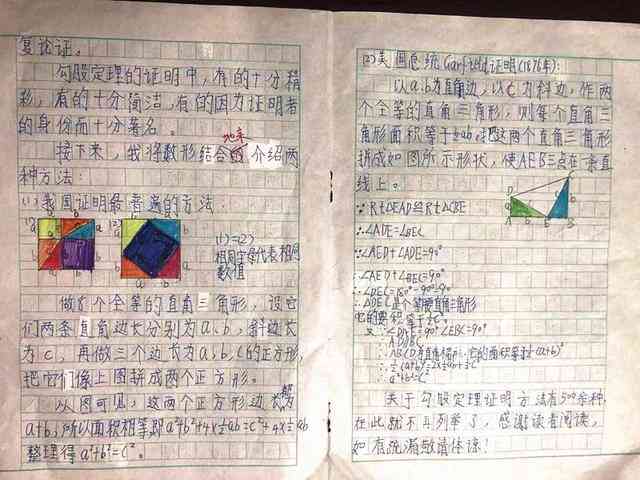 复论证。
勾股定理的证明中,有的十分精
彩,有的十分简洁,有的因为证明者
的身份而十分著名。
地来
接下来,我将数形结合的介绍两
种方法:
(1)我国证明条普遍的方法:
(1) a b a (2) b a
(1)=(2)
相同字母代表相同
数值
做8个全等的直角三角形,设它
们两条直角边长分别为a、b,斜边长
为c,再做三个边长为a、b、c的正方形,
把它们像上图拼成两个正方形。
从图可见,这两个正方形边长都为
a+b,所以面积相等即a²+b²+4×½ab=c²+4×½ab
整理得a²+b²=c²。
(2)美国总统Garfield证明(1876年):
以a、b为直角边,以c为斜边,作两
个全等的直角三角形,则每个直角三
角形面积等于½ab,把这两个直角三角形
拼成如图所示形状,使AEB三点在一条直
线上。
∵Rt△EAD≌Rt△CBE
∴∠ADE=∠BEC
∵∠AED+∠ADE=90°
∴∠AED+∠BEC=90°
∴∠DEC=180°-90°=90°
∴△DEC是个等腰直角三角形
它的面积等于½c²
又∵∠DAE=90° ∠EBC=90°
∴AD∥BC
∴ABCD是直角梯形,它的面积等于½(a+b)²
∴½(a+b)²=2×½ab+½c²
∴a²+b²=c²
关于勾股定理证明方法有500余种,
在此就不再列举了,感谢读者阅读,
如有疏漏敬请体谅!